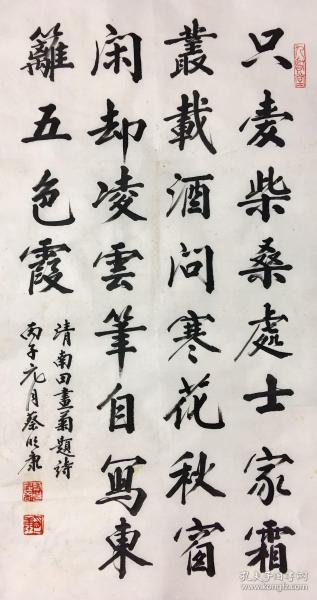 只爱柴桑處士家霜
叢載酒問寒花秋窗
闲却凌雲筆自寫東
籬五色霞
清南田畫菊題詩
丙子元月蔡
孔夫子旧书网